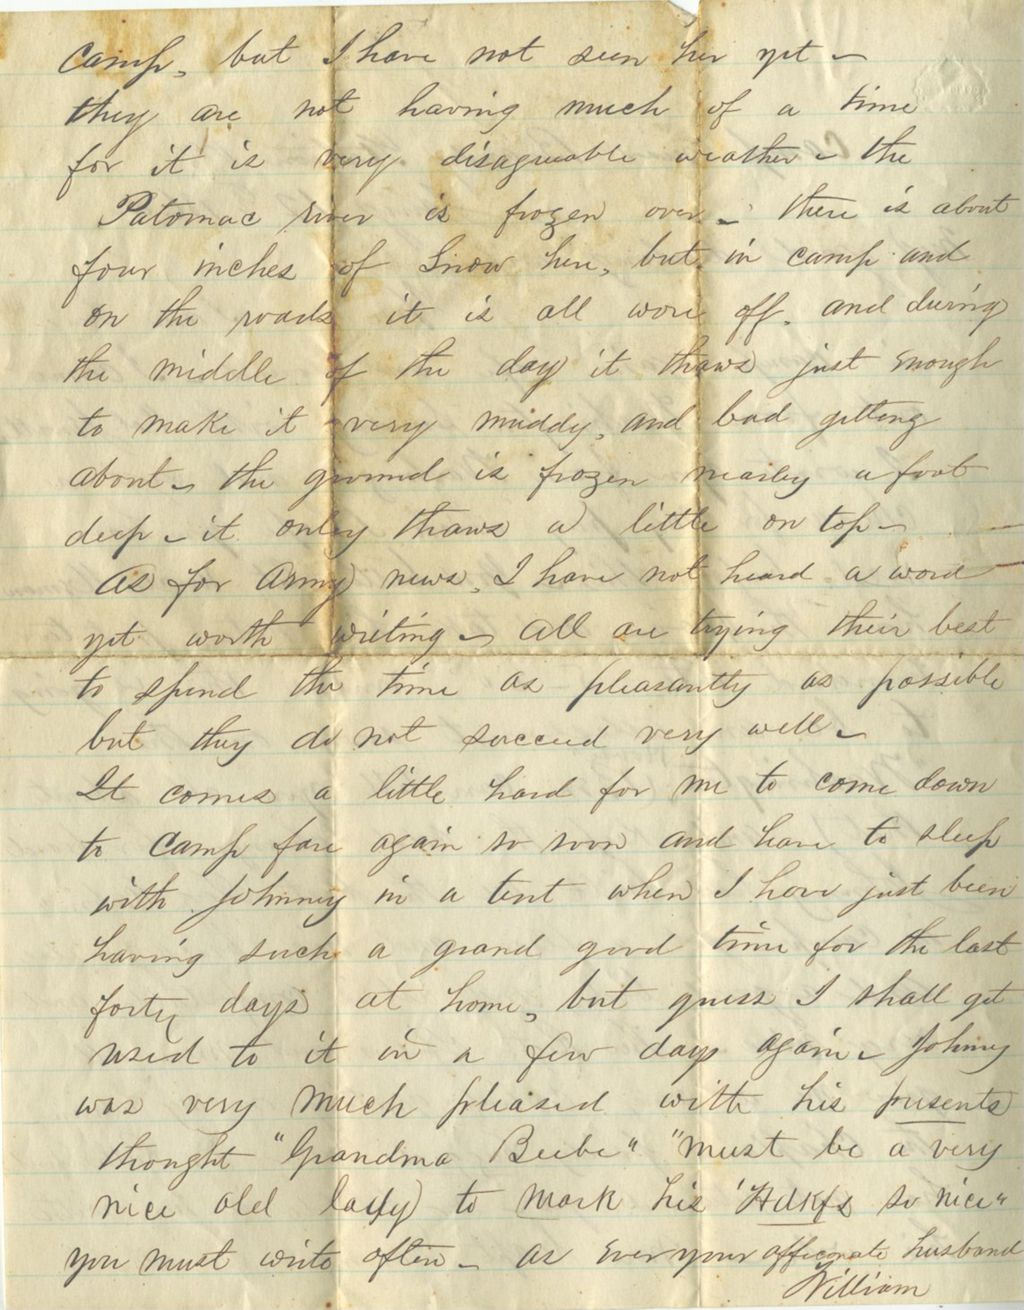 camp, but I have not seen her yet –
they are not having much of a time
for it is very disagreeable weather – the
Patomac river is frozen over – there is about
four inches of Snow here, but in camp and
on the roads it is all wore off, and during
the middle of the day it thaws just enough
to make it very muddy, and bad getting
about – the ground is frozen nearly a foot
deep – it only thaws a little on top –
As for Army news, I have not heard a word
yet worth writing – All are trying their best
to spend the time as pleasantly as possible
but they do not succeed very well –
It comes a little hard for me to come down
to camp fare again so soon and have to sleep
with Johnney in a tent when I have just been
having such a grand good time for the last
forty days at home, but guess I shall get
used to it in a few days again – Johney
was very much pleased with his presents
thought "Grandma Beebe" "must be a very
nice old lady) to mark his 'Hdkfs so nice"
you must write often – as ever your afficonate husband
William